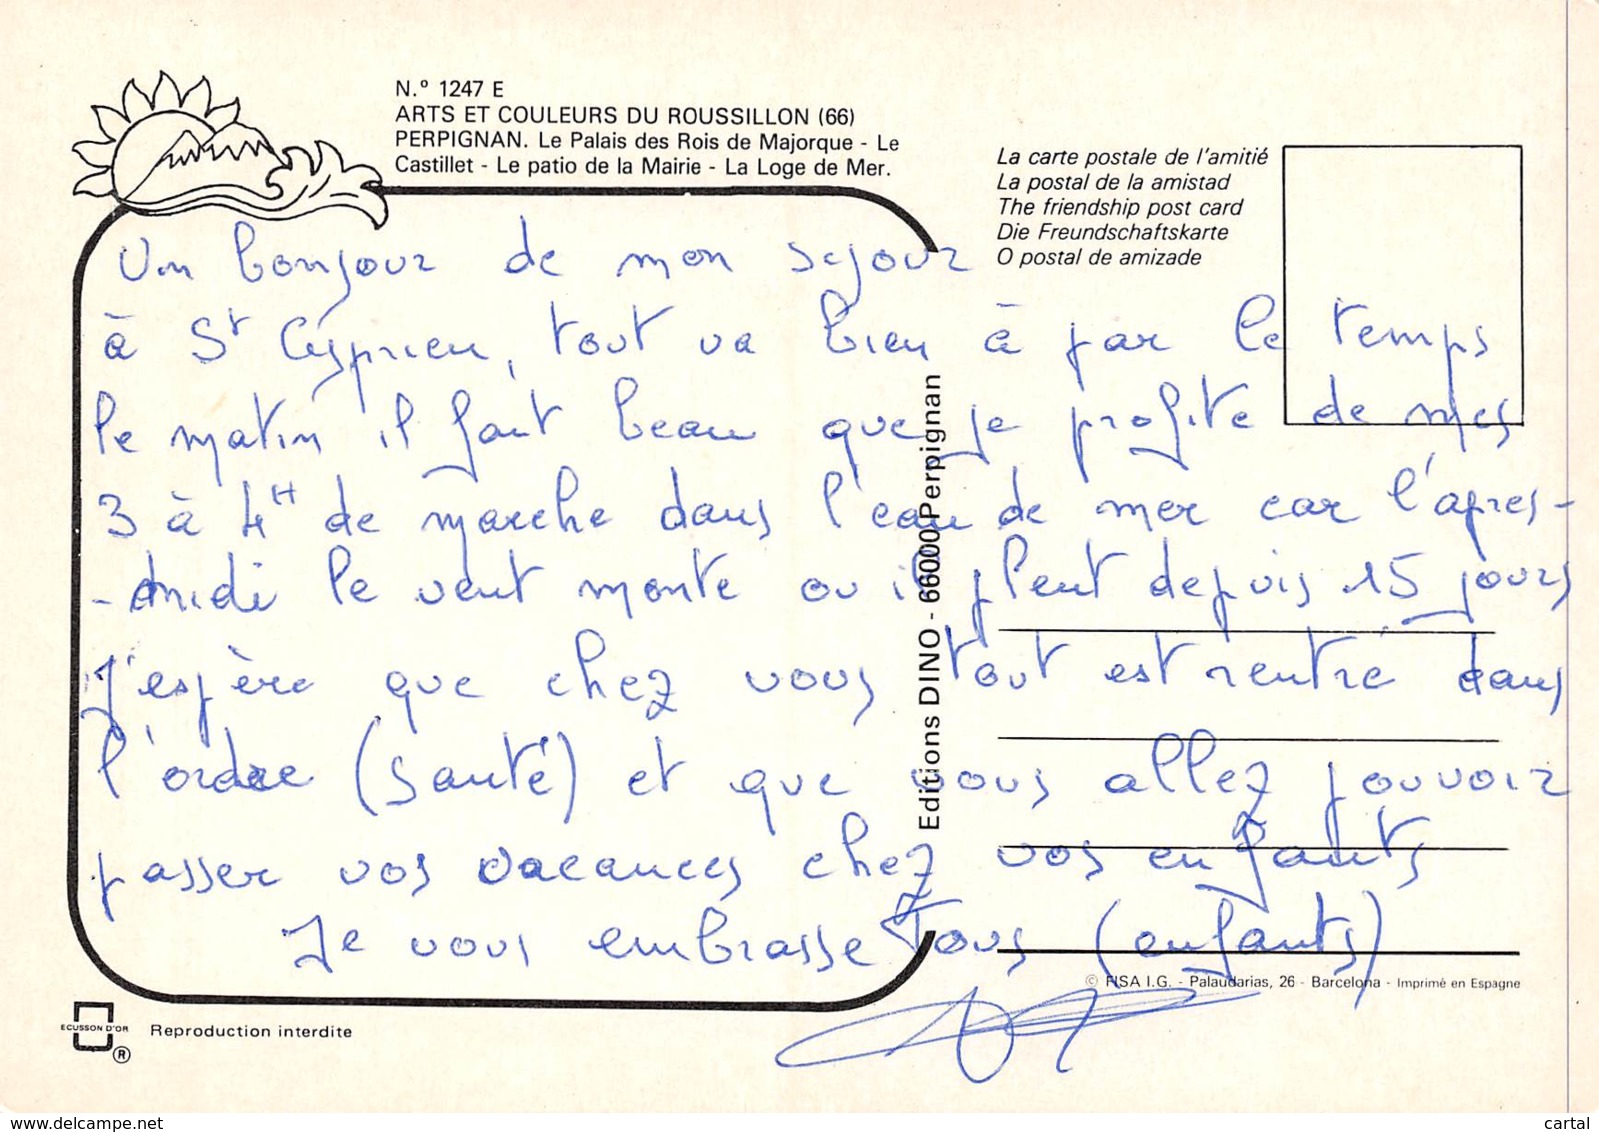 N.º 1247 E
ARTS ET COULEURS DU ROUSSILLON (66)
PERPIGNAN. Le Palais des Rois de Majorque - Le
Castillet - Le patio de la Mairie - La Loge de Mer.
La carte postale de l'amitié
La postal de la amistad
The friendship post card
Die Freundschaftskarte
O postal de amizade
Un bonjour de mon sejour
à St Cyprien, tout va bien à par le temps
le matin il fait beau que je profite de mes
3 à 4H de marche dans l'eau de mer car l'apres-
-midi le vent monte ou il pleut depuis 15 jours
J'espère que chez vous tout est rentré dans
l'ordre (santé) et que vous allez pouvoir
passer vos vacances chez vos enfants
Je vous embrasse Tous (enfants)
Editions DINO - 66000 Perpignan
© FISA I.G. - Palaudarias, 26 - Barcelona - Imprimé en Espagne
ECUSSON D'OR
®
Reproduction interdite
www.delcampe.net
cartal